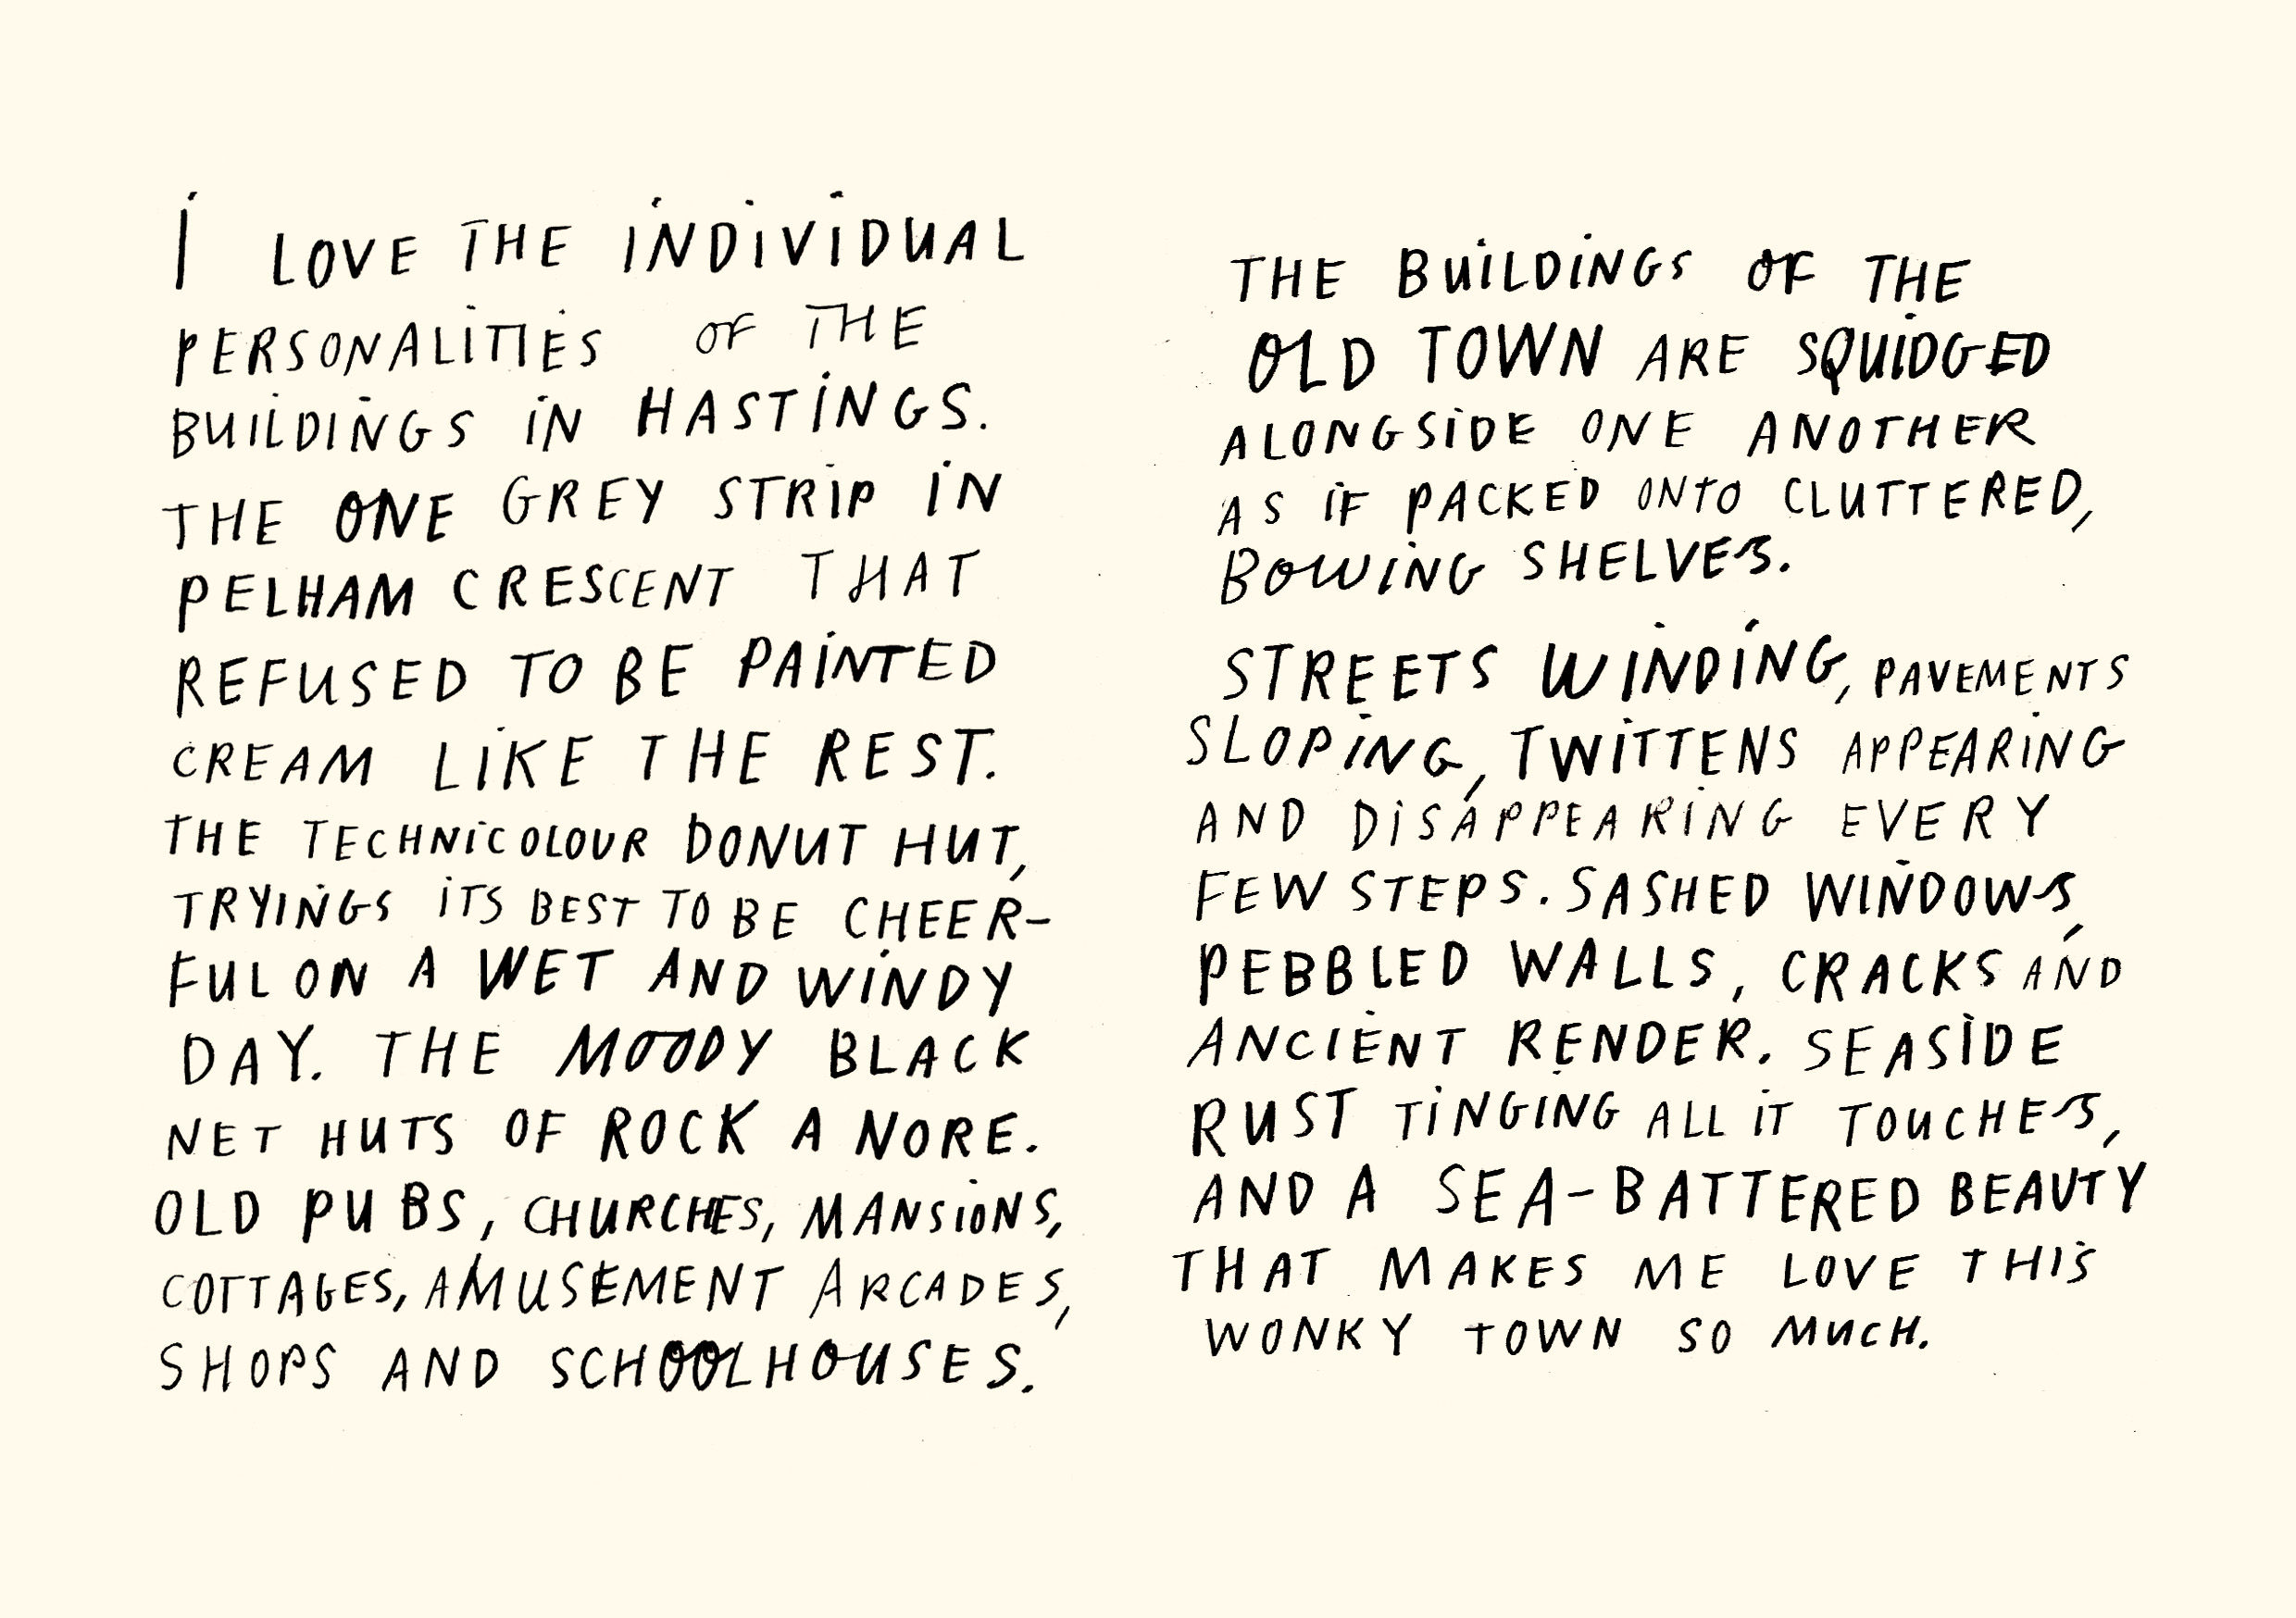 I LOVE THE INDIVIDUAL
PERSONALITIES OF THE
BUILDINGS IN HASTINGS.
THE ONE GREY STRIP IN
PELHAM CRESCENT THAT
REFUSED TO BE PAINTED
CREAM LIKE THE REST.
THE TECHNICOLOUR DONUT HUT,
TRYINGS ITS BEST TO BE CHEER-
FUL ON A WET AND WINDY
DAY. THE MOODY BLACK
NET HUTS OF ROCK A NORE.
OLD PUBS, CHURCHES, MANSIONS,
COTTAGES, AMUSEMENT ARCADES,
SHOPS AND SCHOOLHOUSES.
THE BUILDINGS OF THE
OLD TOWN ARE SQUIDGED
ALONGSIDE ONE ANOTHER
AS IF PACKED ONTO CLUTTERED,
BOWING SHELVES.
STREETS WINDING, PAVEMENTS
SLOPING, TWITTENS APPEARING
AND DISAPPEARING EVERY
FEW STEPS. SASHED WINDOWS,
PEBBLED WALLS, CRACKS AND
ANCIENT RENDER. SEASIDE
RUST TINGING ALL IT TOUCHES,
AND A SEA-BATTERED BEAUTY
THAT MAKES ME LOVE THIS
WONKY TOWN SO MUCH.